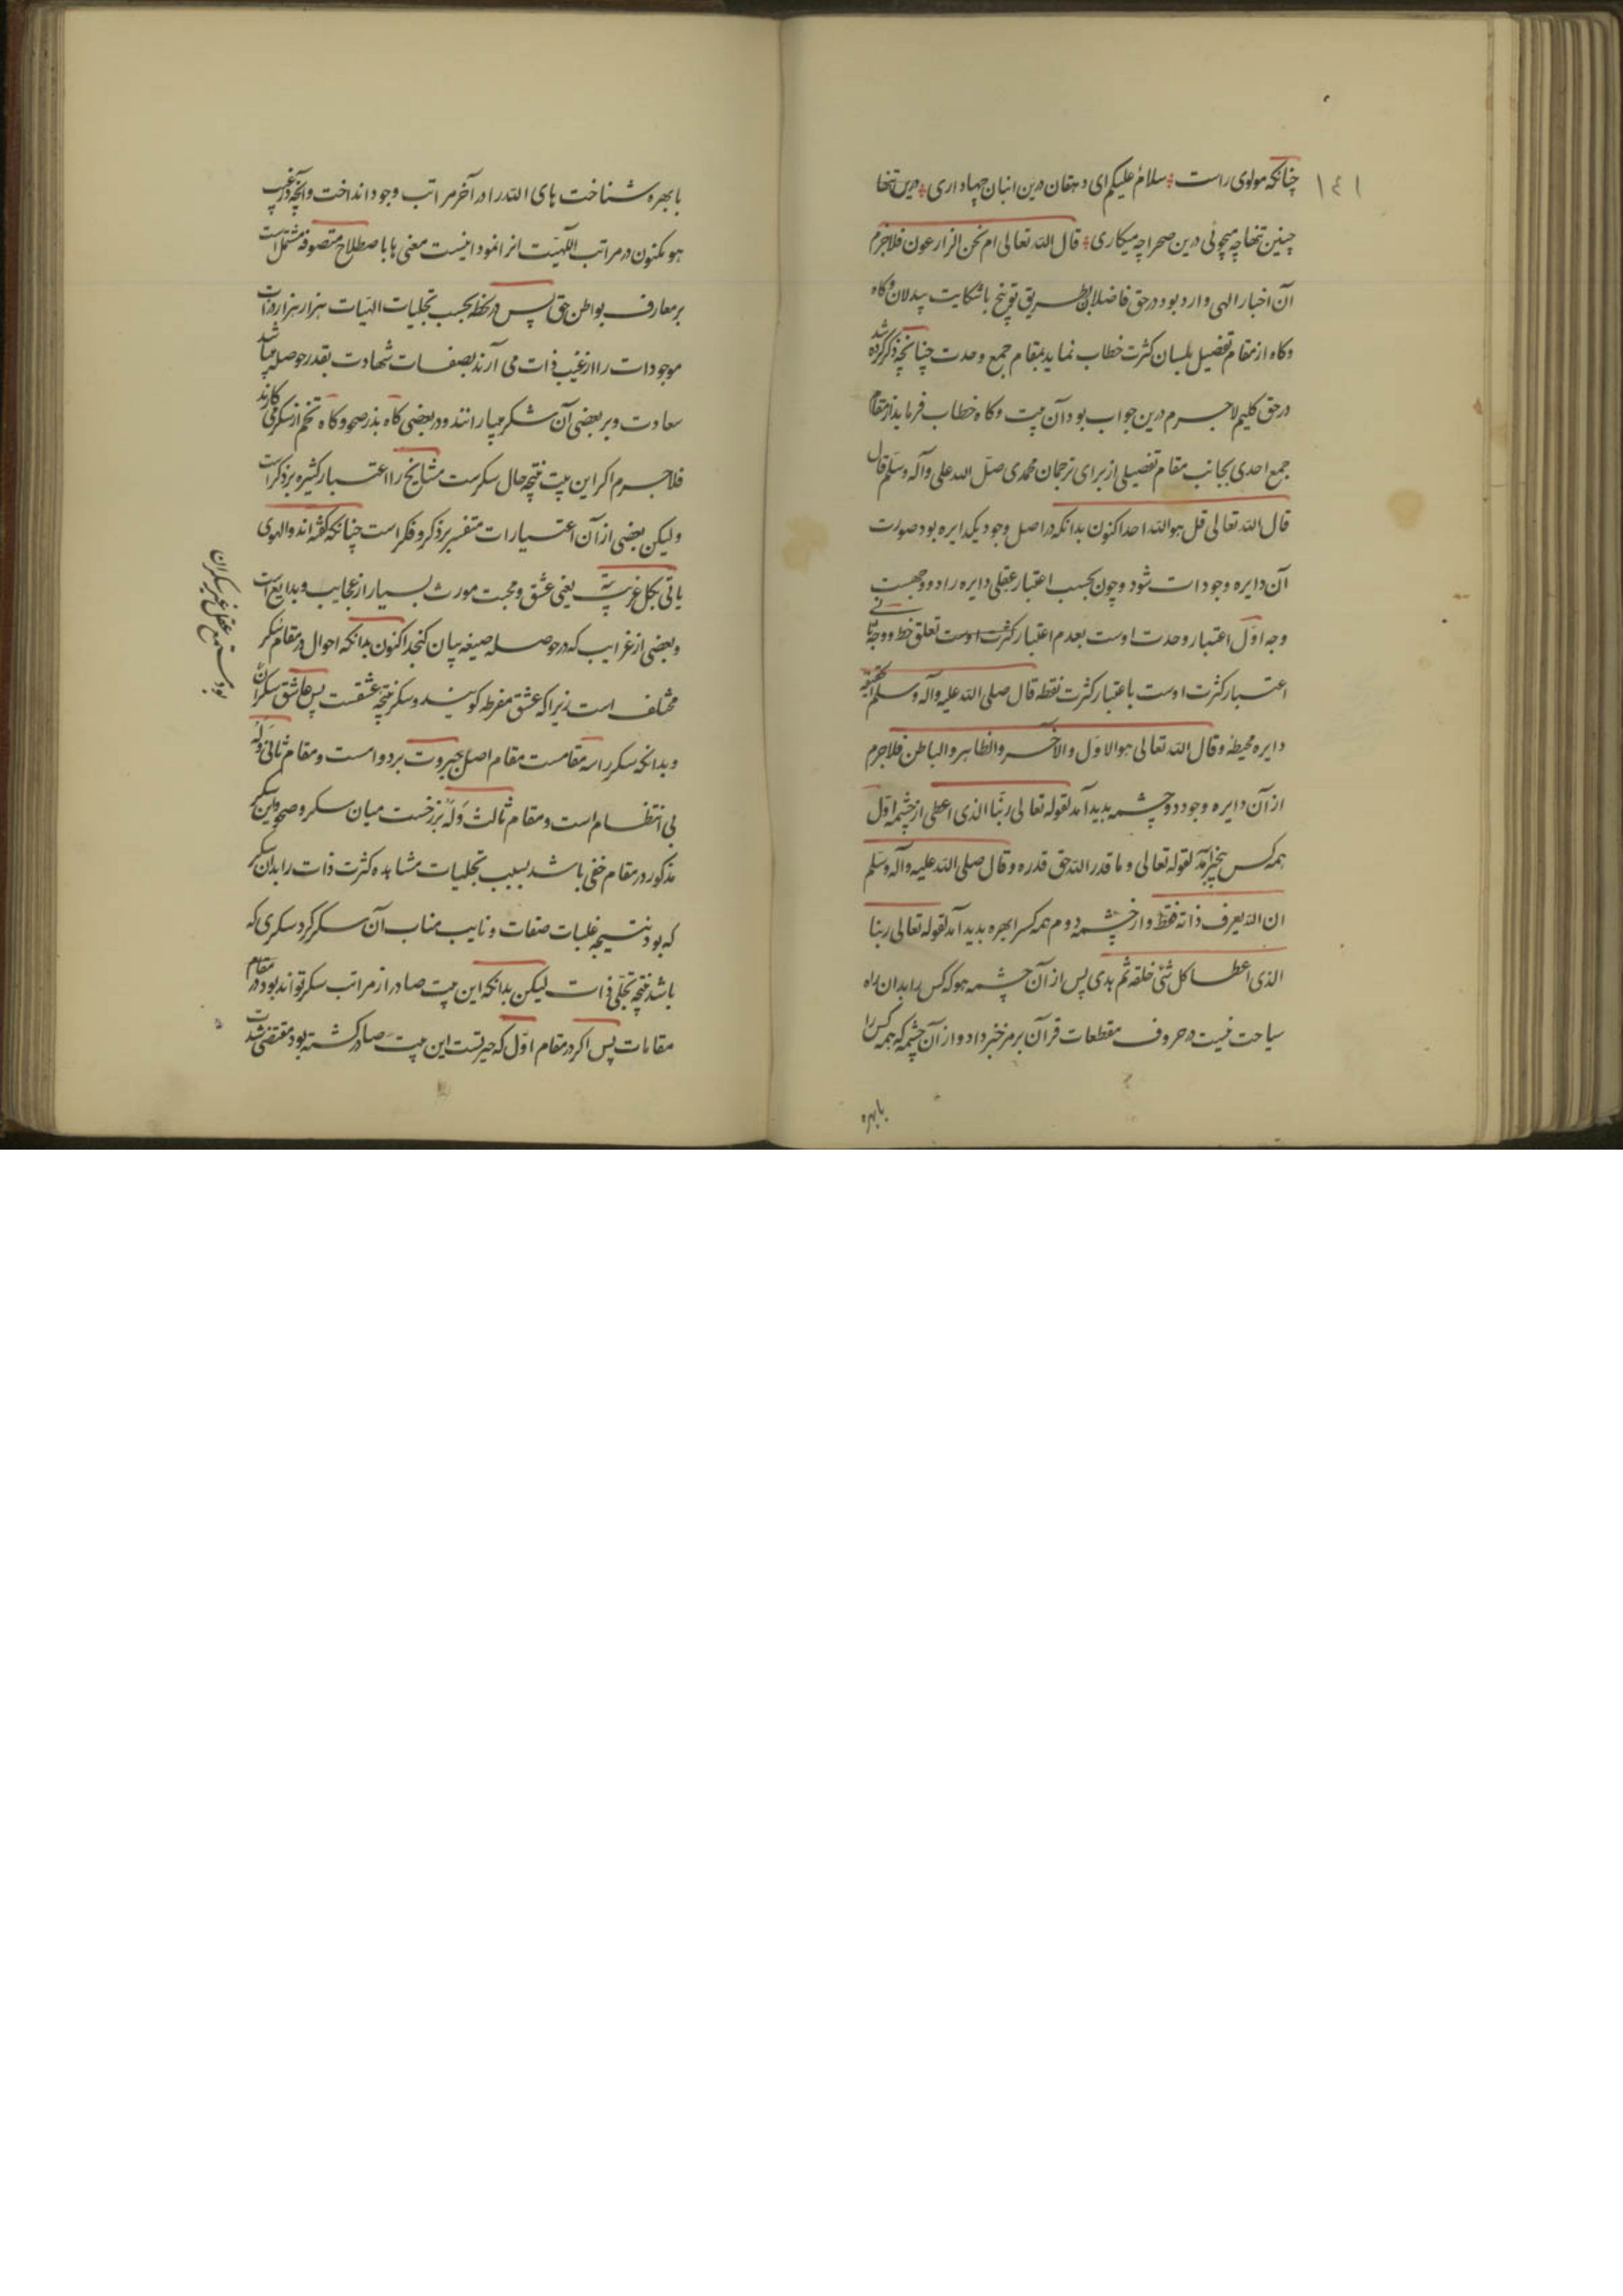 ۱۴۱
چنانکه مولوی راست سلام علیکم ای دهقان درین انبان چهاداری درین تنها
چنین تنها چه میجوئی درین صحرا چه میکاری قال الله تعالی ام نحن الزارعون فلاجرم
آن اخبار الهی وارد بود در حق فاضلان بطریق توبیخ باشکایت بیدلان وگاه
وگاه از مقام تفصیل بلسان کثرت خطاب نماید بمقام جمع وحدت چنانچه ذکر کرده شد
در حق کلیم لاجرم درین جواب بود آن بیت وگاه خطاب فرماید از مقام
جمع احدی بجانب مقام تفصیلی از برای ترجمان محمدی صلی الله علی وآله وسلم قال
قال الله تعالی قل هو الله احد اکنون بدانکه در اصل وجود یکدایره بود صورت
آن دایره وجودات شود وچون بحسب اعتبار عقلی دایره را دو وجهست
وجه اول اعتبار وحدت اوست بعدم اعتبار کثرت اوست تعلق خط ووجه ثانی
اعتبار کثرت اوست باعتبار کثرت نقطه قال صلی الله علیه وآله وسلم الحقیقة
دایره محیطة وقال الله تعالی هو الاول والآخر والظاهر والباطن فلاجرم
از آن دایره وجود دو چشمه بدید آمد لقوله تعالی ربنا الذی اعطی از چشمه اول
همه کس بیخبر آمد لقوله تعالی وما قدر الله حق قدره وقال صلی الله علیه وآله وسلم
ان الله یعرف ذاته فقط واز چشمه دوم همه کس را بهره بدید آمد لقوله تعالی ربنا
الذی اعطا کل شئ خلقه ثم هدی پس از آن چشمه هو که کس را بدان راه
سیاحت نیست در حروف مقطعات قرآن برمز خبر داد واز آن چشمه که همه کس را
بابهره
بابهره شناخت های الله را در آخر مراتب وجود انداخت وآنچه در غیب
هو مکنون در مراتب الهیت انرا نمود اینست معنی ها با صطلاح متصوفه مشتمل است
بر معارف بواطن حق پس در لحظه بحسب تجلیات الهیات هزار هزار ذرات
موجودات را از غیب ذات می آرند بصفات شهادت بقدر حوصله میباشد
سعادت وبر بعضی آن شکر میبارانند ودر بعضی گاه بذر صحو وگاه تخم از سکر می کارند
فلاجرم اکر این بیت نتیجه حال سکرست مشایخ را اعتبار کثیره بزدکرات
ولیکن بعضی از آن اعتبارات متفسیر ذکر وفکر است چنانکه گفته اند والهوی
یاتی بکل غریبة یعنی عشق ومحبت مورث بسیار از عجایب وبدایع است
وبعضی از غرایب که در حوصله صیغه بیان گنجد اکنون بدانکه احوال در مقام سکر
مختلف است زیرا که عشق مفرطه گویند وسکر نتیجه عشقست پس عاشق سکران
وبدانکه سکر را سه مقامست مقام اصل حیرت بر دوامست ومقام ثانی وله
بی انتظام است ومقام ثالث وله برزخست میان سکر وصحو واین سکر
مذکور در مقام خفی باشد بسبب تجلیات مشاهده کثرت ذات را بدان سکر
که بود نتیجه غلبات صفات ونایب مناب آن سکر گردد سکری که
باشد نتیجه تجلی ذات لیکن بدانکه این بیت صادر از مراتب سکر تواند بود در مقام
مقامات پس اکر در مقام اول که حیرتست این بیت صادر گشته بود مقتضی شدت
بود مستمع عقل غیر سکران